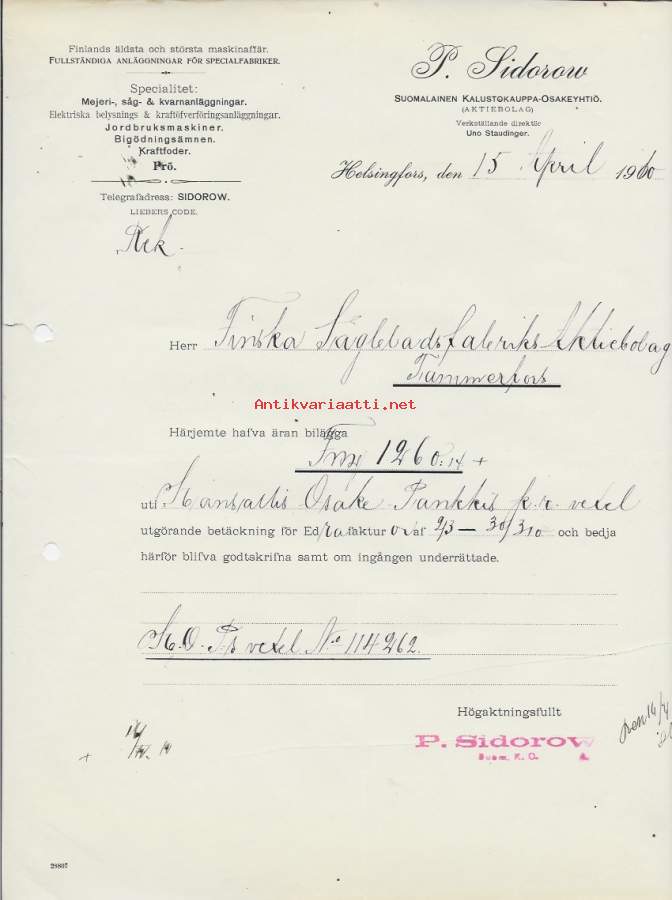 Finlands äldsta och största maskinaffär.
FULLSTÄNDIGA ANLÄGGNINGAR FÖR SPECIALFABRIKER.
Specialitet:
Mejeri-, såg- & kvarnanläggningar.
Elektriska belysnings & kraftöfverföringsanläggningar.
Jordbruksmaskiner.
Bigödningsämnen.
Kraftfoder.
Frö.
Telegrafadress: SIDOROW.
LIEBERS CODE.
P. Sidorow
SUOMALAINEN KALUSTOKAUPPA-OSAKEYHTIÖ.
(AKTIEBOLAG)
Verkställande direktör
Uno Staudinger.
Helsingfors, den 15 April 1910
Rek.
Herr Finska Sågbladsfabriks Aktiebolag
Tammerfors
Antikvariaatti.net
Härjemte hafva äran bilägga
Fmk 1260:14 +
uti Kansallis Osake Pankkis p.r. vexel
utgörande betäckning för Edra faktur or af 2/3 — 30/3 10 och bedja
härför blifva godtskrifna samt om ingången underrättade.
K.O.P:s vexel No 114262.
Högaktningsfullt
P. Sidorow
Suom. K. O.
+ 16/IV. 10
28807